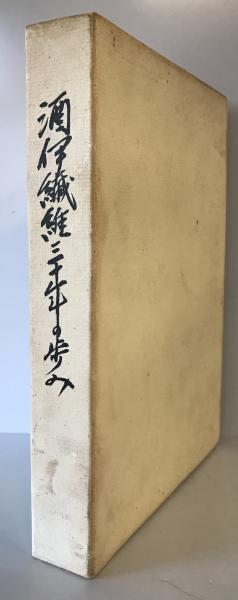 酒伊纎維三十年の歩み